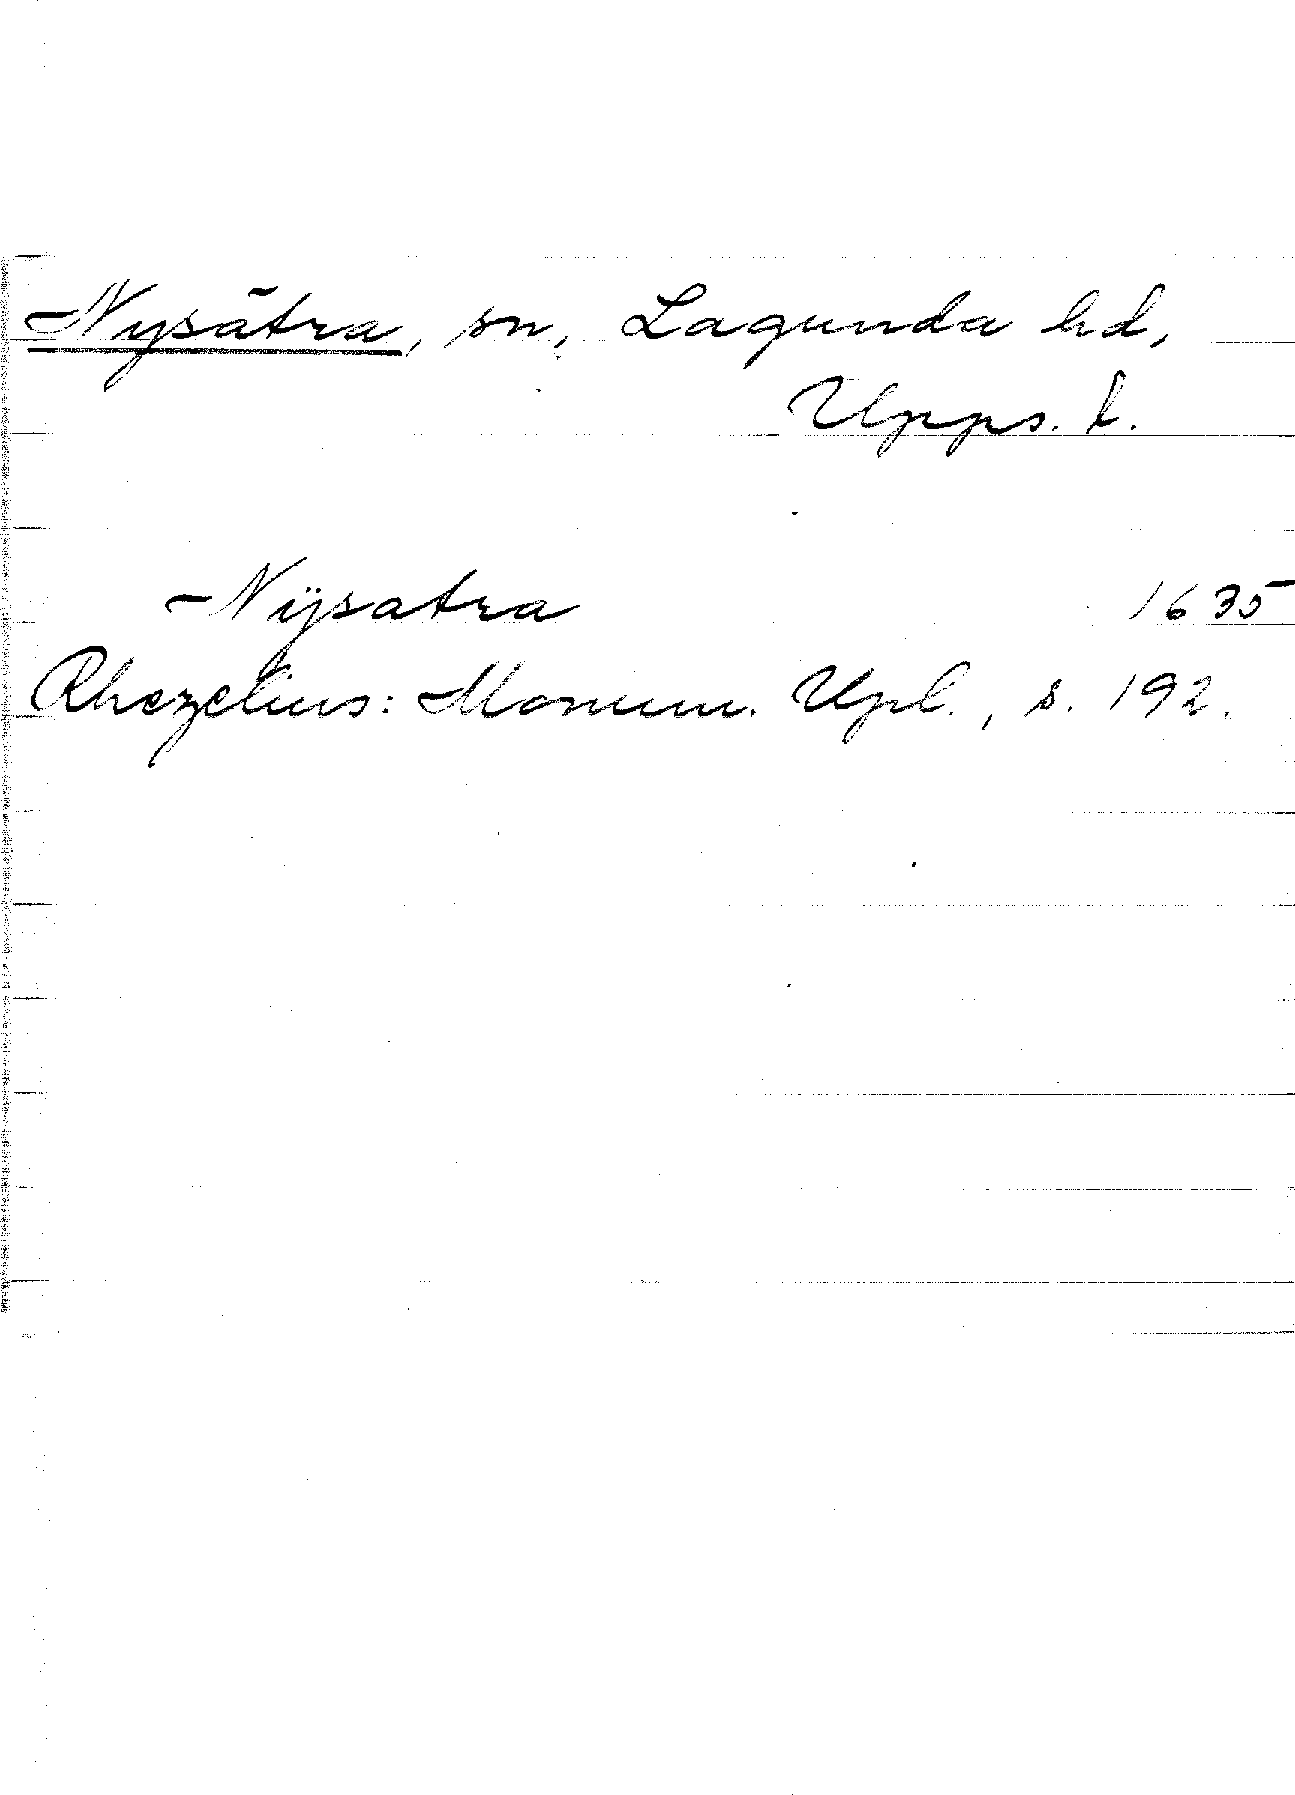 Nysätra, sn, Lagunda hd,
Upps. l.
Nÿsatra 1635
Rhezelius: Monum. Upl., s. 192.